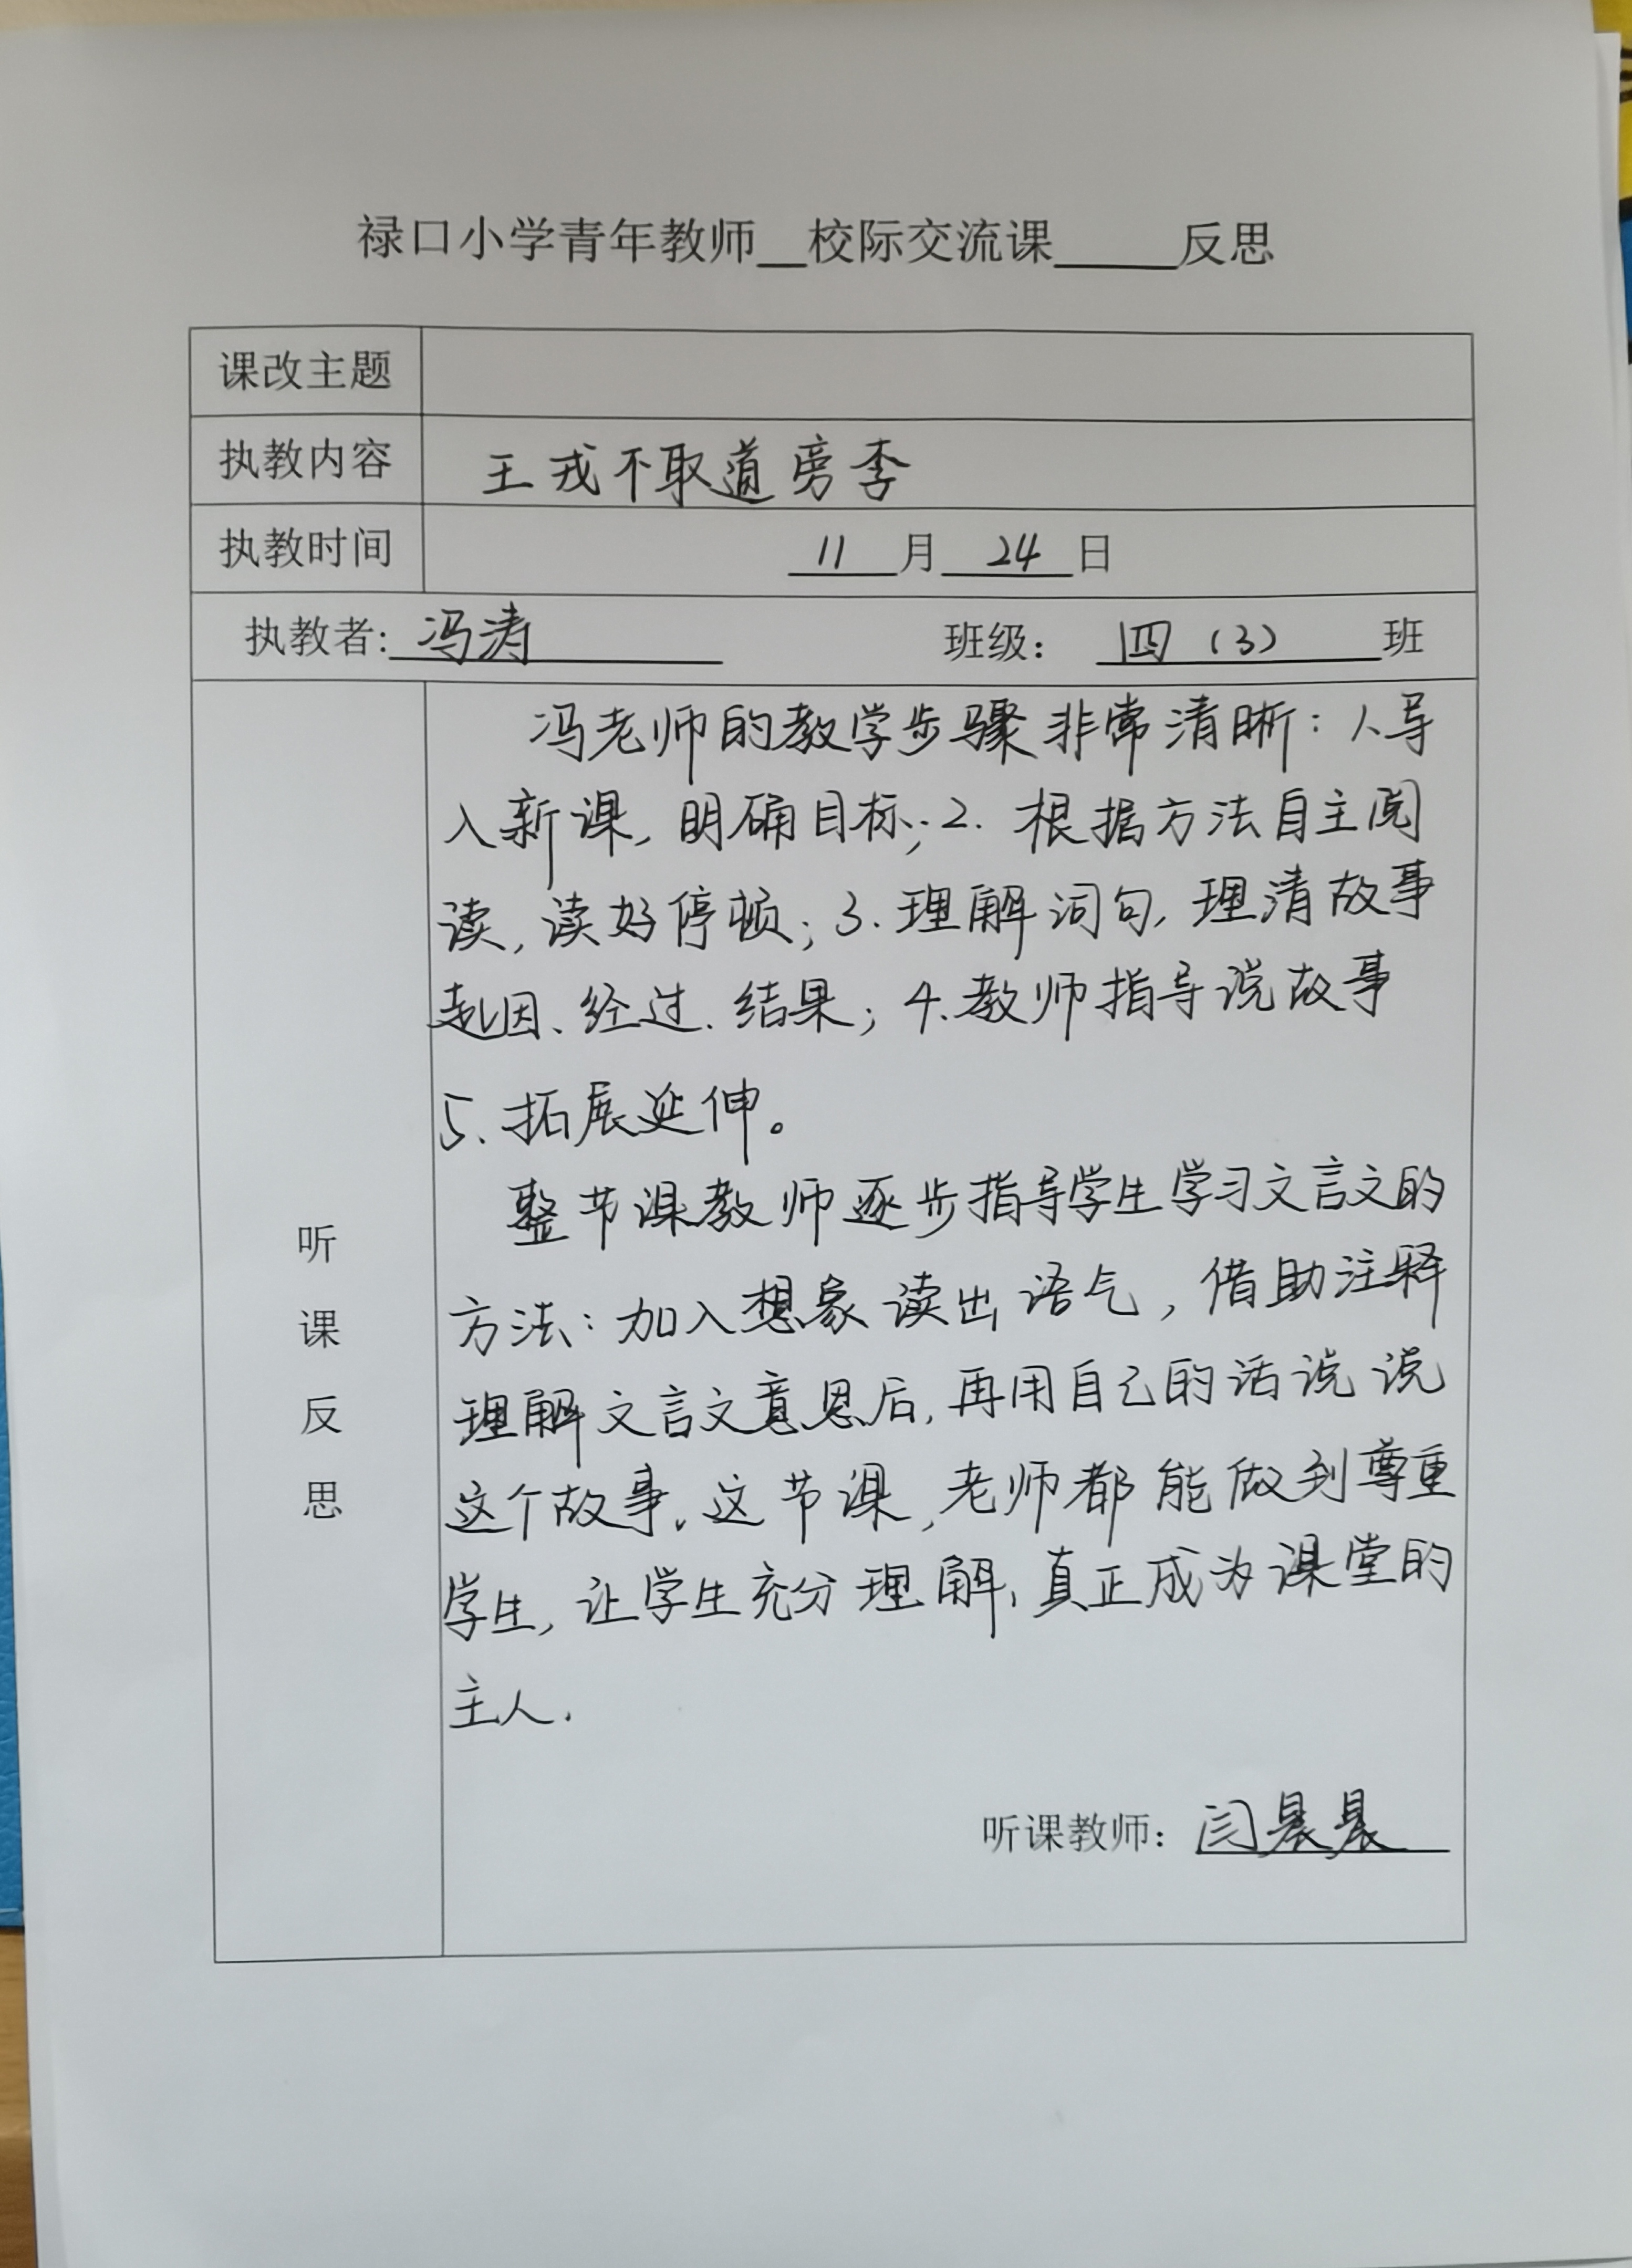 禄口小学青年教师__校际交流课_____反思
课改主题
执教内容 王戎不取道旁李
执教时间 11月24日
执教者:冯涛 班级：四（3）班
听课反思
冯老师的教学步骤非常清晰：1、导
入新课，明确目标；2. 根据方法自主阅
读，读好停顿；3.理解词句，理清故事
起因、经过、结果；4.教师指导说故事
5、拓展延伸。
整节课教师逐步指导学生学习文言文的
方法：加入想象读出语气，借助注释
理解文言文意思后，再用自己的话说说
这个故事。这节课，老师都能做到尊重
学生，让学生充分理解，真正成为课堂的
主人.
听课教师：闫晨晨